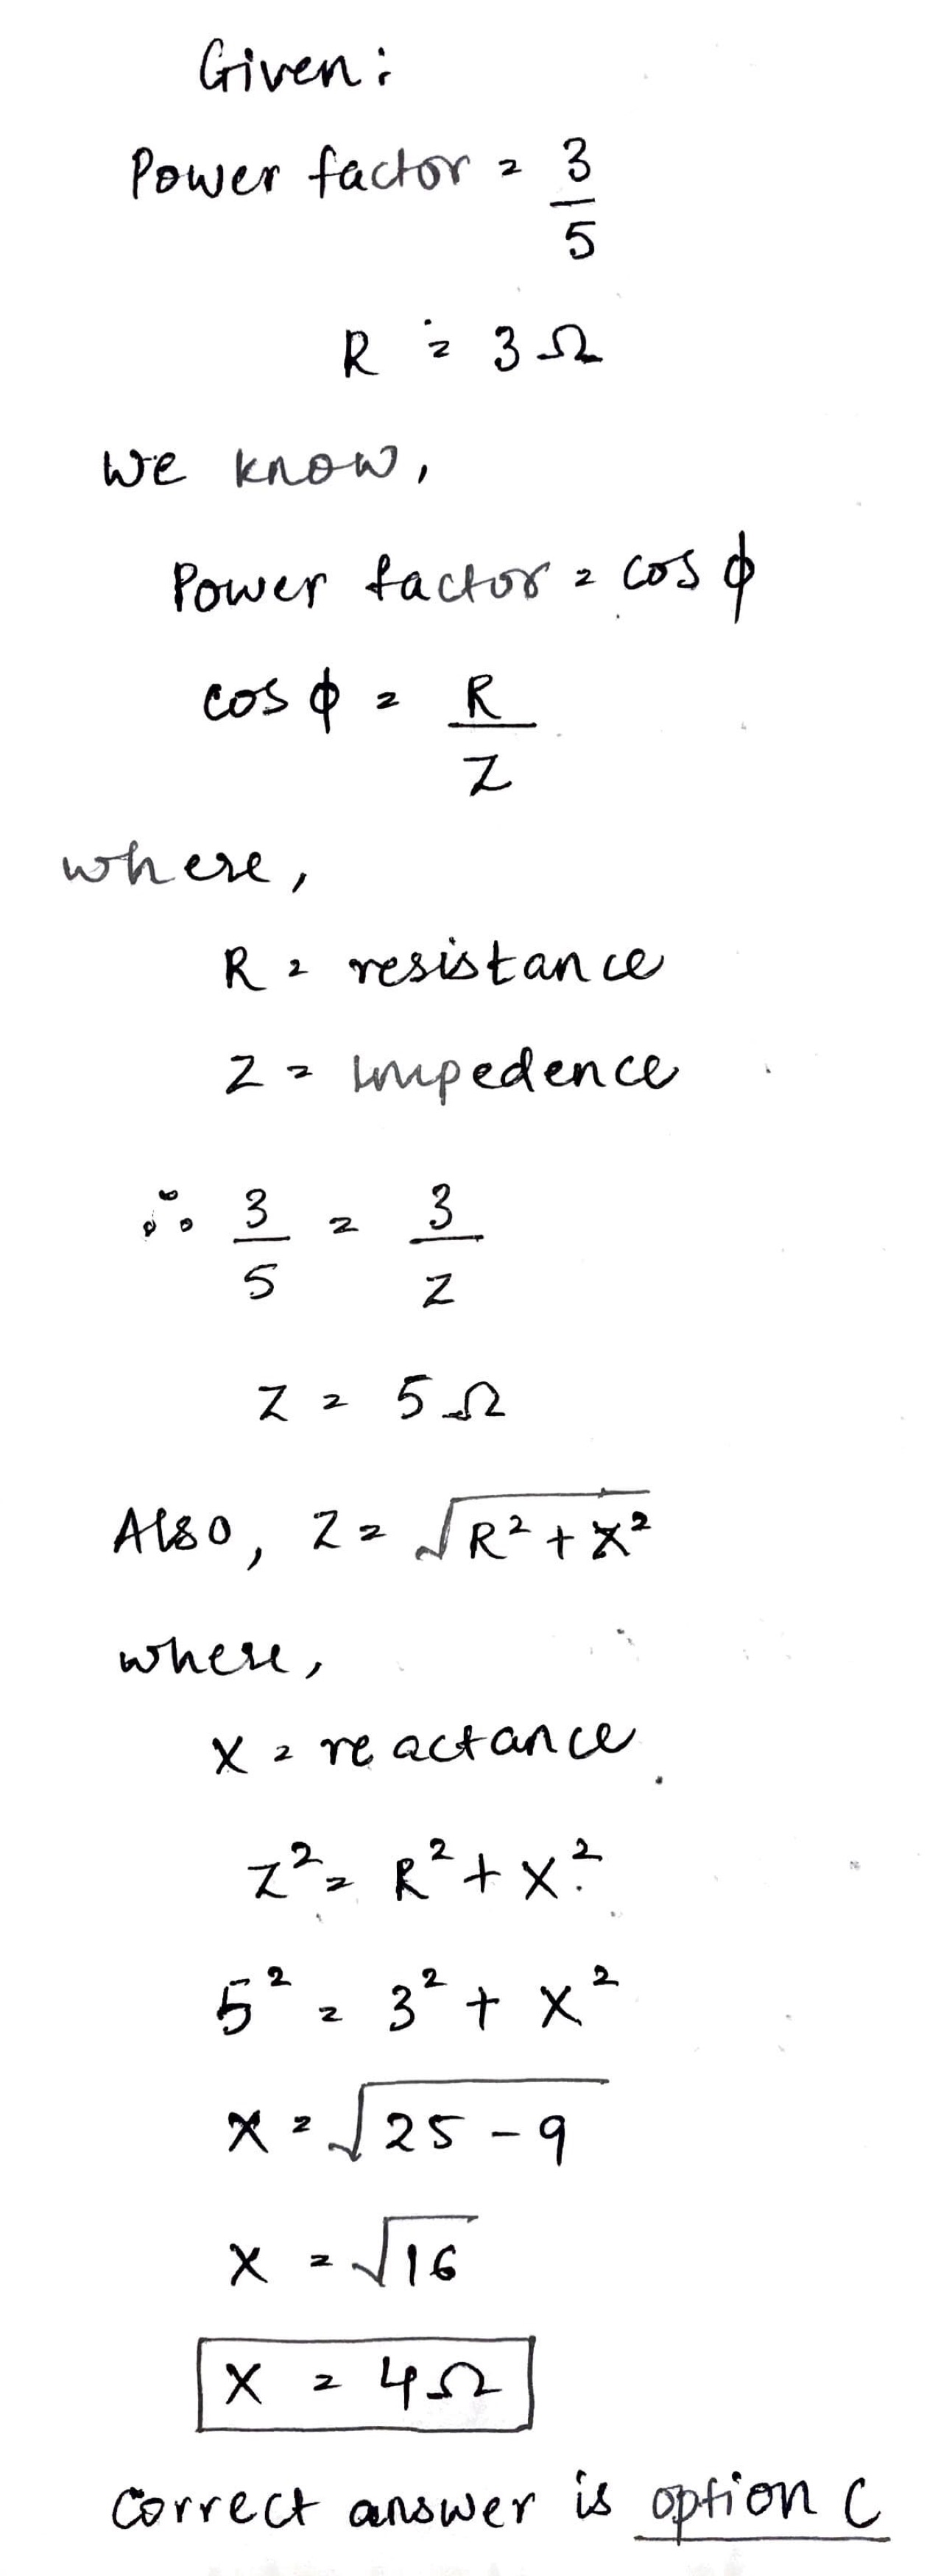 Given:
Power factor = 3/5
R = 3Ω
We know,
Power factor = cos ϕ
cos ϕ = R/Z
where,
R = resistance
Z = Impedence
∴ 3/5 = 3/Z
Z = 5Ω
Also, Z = √(R² + X²)
where,
X = reactance
Z² = R² + X²
5² = 3² + X²
X = √(25 - 9)
X = √16
X = 4Ω
Correct answer is option C